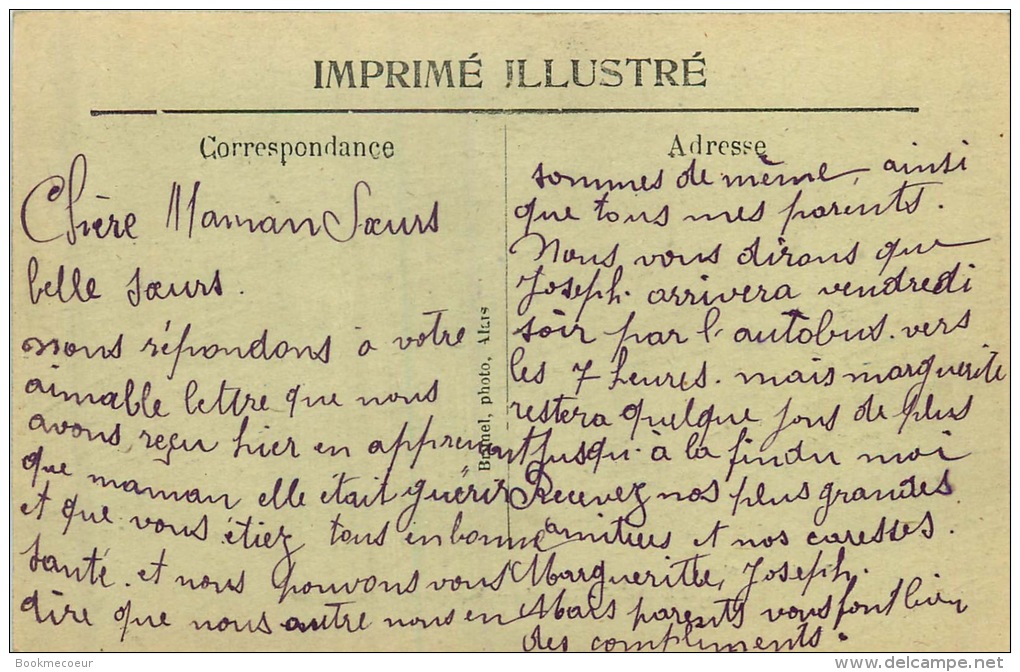 IMPRIMÉ ILLUSTRÉ
Correspondance
Chère Maman Sœurs
belle sœurs.
nous répondons à votre
aimable lettre que nous
avons reçu hier en apprenant
que maman elle était guérir
et que vous étiez tous en bonne
santé. et nous pouvons vous
dire que nous autre nous en
Brunel, photo, Alais
Adresse
sommes de même, ainsi
que tous mes parents.
Nous vous dirons que
Joseph. arrivera vendredi
soir par l'autobus. vers
les 7 heures. mais marguerite
restera quelque jous de plus
jusqu'à la findu moi
Recevez nos plus grandes
amitiers et nos caresses.
Margueritte, Joseph.
Mais parents vous font bien
des compliments.
Bookmecoeur
delcampe.net